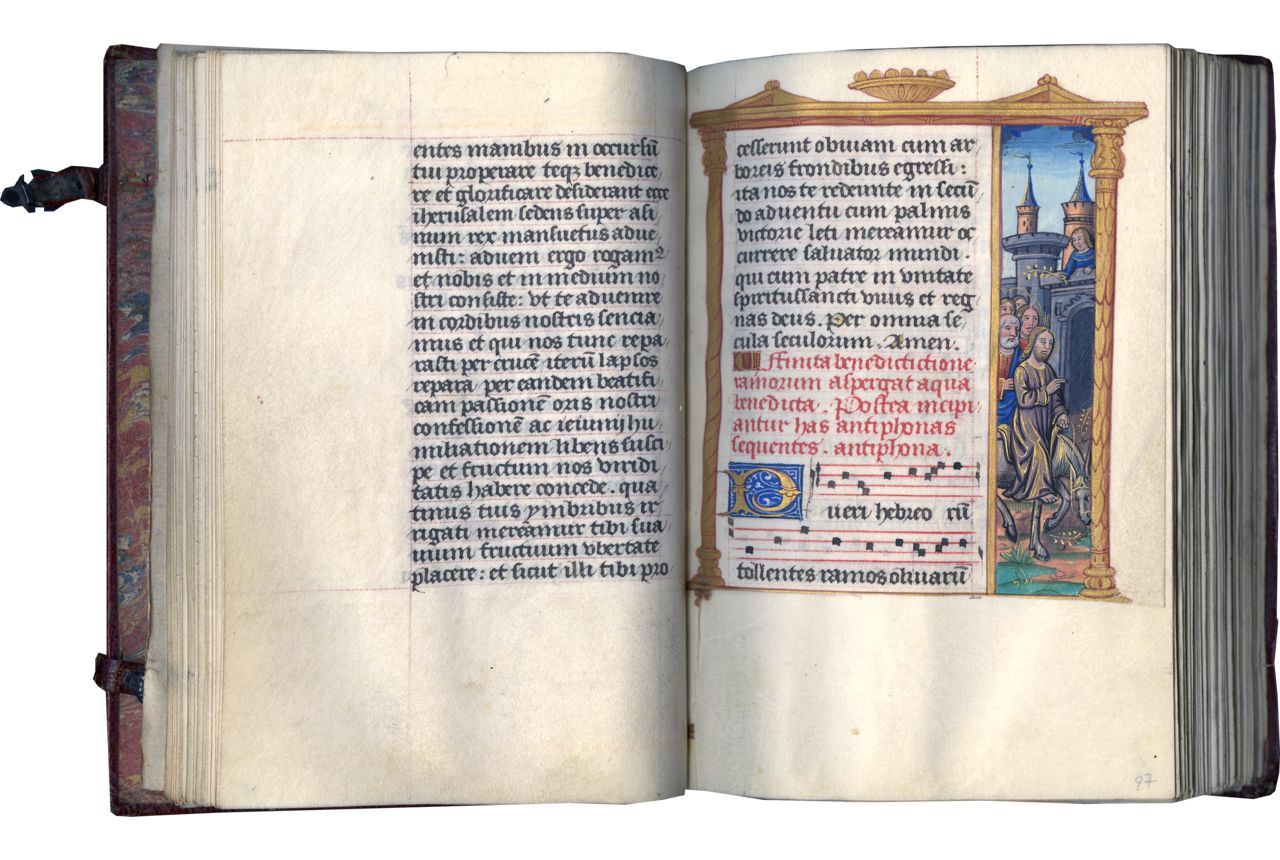 entes manibus in occursū
tui properare teqꝫ benedice
re et glorificare desiderant ecce
iherusalem sedens super asi
num rex mansuetus adue
nisti: aduem ergo rogamꝰ
et nobis et in medium no
stri consiste: vt te aduenire
in cordibus nostris sencia
mus et qui nos tunc repa
rasti per crucē iterū lapsos
repara per eandem beatifi
cam passionē oris nostri
confessionē ac ieiunij hu
miliationem libens susci
pe et fructum nos viridi
tatis habere concede. qua
tinus tuis ymbribus ir
rigati mereamur tibi sua
uium fructuum vbertate
placere: et sicut illi tibi pro
cesserunt obuiam cum ar
boreis frondibus egressi:
ita nos te redeunte in secū
do aduentu cum palmis
victorie leti mereamur oc
currere saluator mundi.
qui cum patre in vnitate
spiritussancti viuis et reg
nas deus. Per omnia se
cula seculorum. Amen.
Ffinita benedictictione
ramorum aspergat aqua
benedicta. Postea incipi
antur has antiphonas
sequentes. antiphona.
Pueri hebreo rū
tollentes ramos oliuarū
97